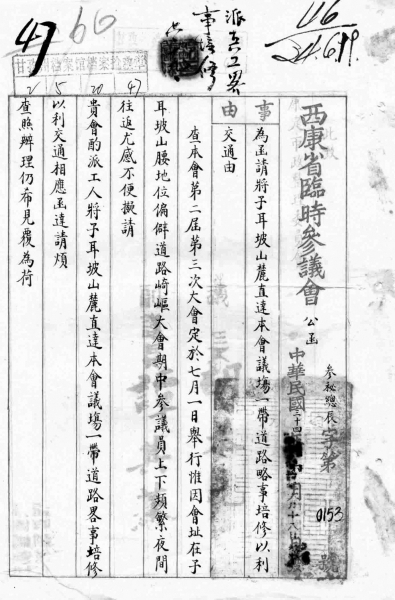 西康省臨時參議會 公函
參秘總辰字第0153號
中華民國三十四年 月廿八日
事由
為函請將子耳坡山麓直達本會議場一帶道路略事培修以利
交通由
查本會第二屆第三次大會定於七月一日舉行惟因會址在子
耳坡山腰地位偏僻道路崎嶇大會期中參議員上下頻繁夜間
往返尤感不便擬請
貴會酌派工人將子耳坡山麓直達本會議場一帶道路畧事培修
以利交通相應函達請煩
查照辦理仍布見覆為荷
派員工畧
事培修
47
66
116
34.6.19.
2
5
20
47